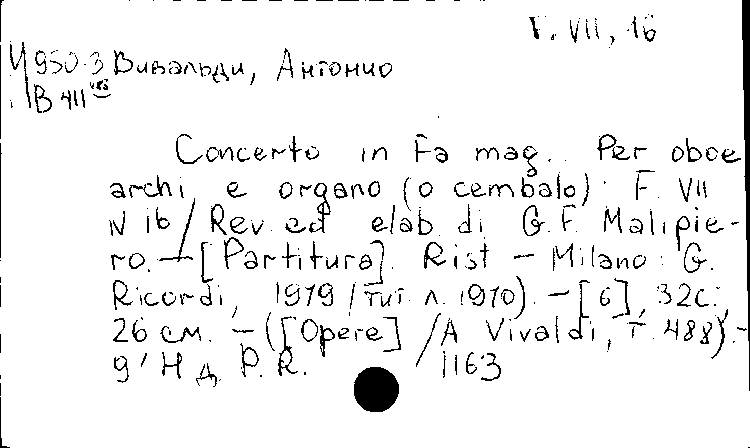 F. VII, 16
Ч 950.3 Вивальди, Антонио
В 411 488
Concerto in Fa mag.. Per oboe
archi e organo (o cembalo): F. VII
N 16 / Rev. ed elab. di G. F. Malipie-
ro. — [Partitura]. Rist — Milano: G.
Ricordi, 1979 / тит. л. 1970). — [6], 32с.;
26 см. — ([Opere] / A Vivaldi, т. 488). —
9' Н д. P. R. 1163